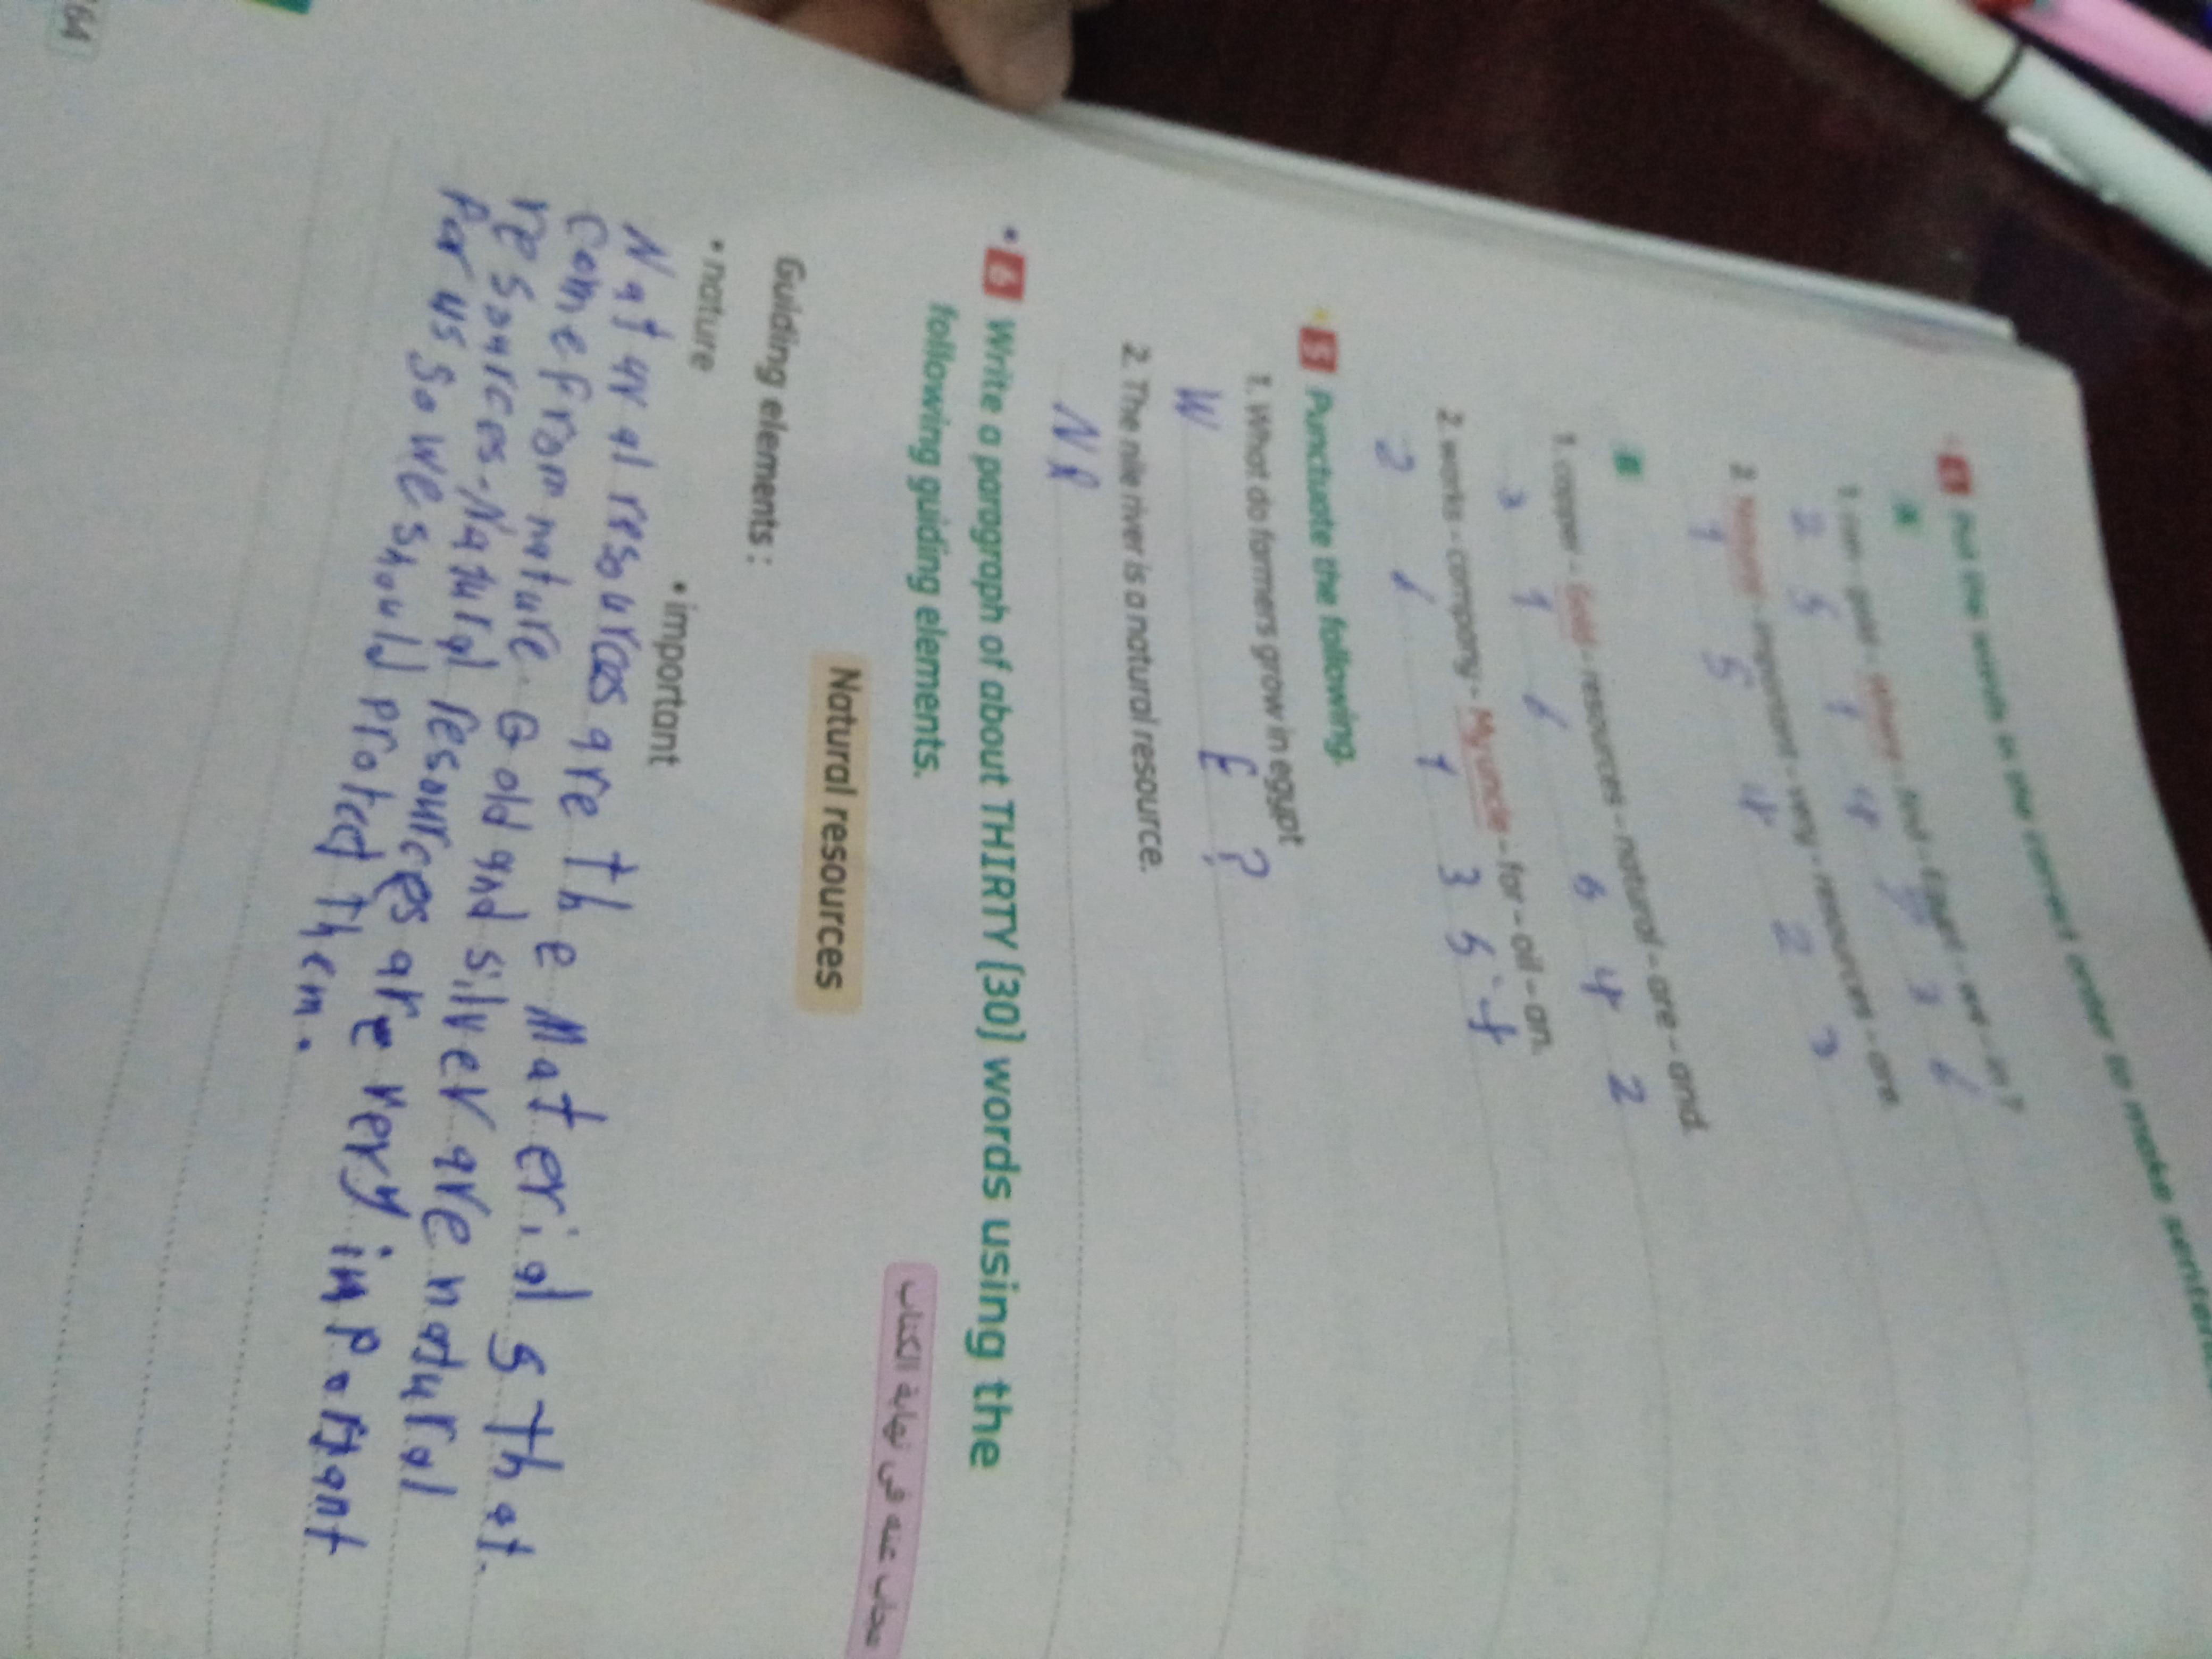 4 Put the words in the correct order to make
A
1. can - gold - where - find - Egypt - we - in ?
2 5 1 4 7 3 6
2. Natural - important - very - resources - are.
1 5 4 2 3
B
1. copper - Gold - resources - natural - are - and.
3 1 6 5 4 2
2. works - company - My uncle - for - oil - an.
2 6 1 3 5 4
5 Punctuate the following.
1. What do farmers grow in egypt
W E ?
2. The nile river is a natural resource.
N R
6 Write a paragraph of about THIRTY (30) words using the
following guiding elements.
مجاب عنه فى نهاية الكتاب
Natural resources
Guiding elements :
• nature • important
Natural resources are the Materials that
come from nature. Gold and silver are natural
resources. Natural resources are very important
For us so we should protect them.
64